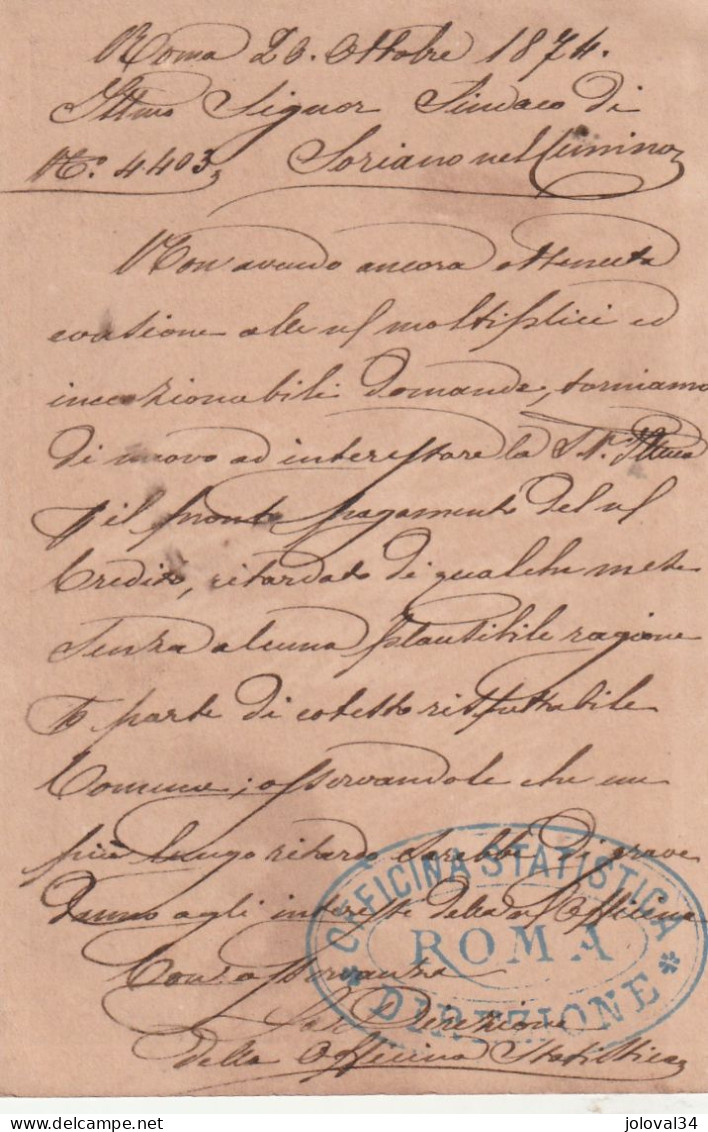 Roma 20. Ottobre 1874.
Illmo Signor Sindaco di
No. 4403, Soriano nel Cimino
Non avendo ancora ottenuta
evasione alle moltiplici ed
incezionabili domande, torniamo
di nuovo ad interessare la S. V. Illma
il pronto pagamento del
Credito, ritardato di qualche mese
senza alcuna plausibile ragione
parte di cotesto rispettabile
Comune; osservandole che un
più lungo ritardo sarebbe di grave
danno agli interessi della Officina
Con osservanza
La Direzione
della Officina Statistica
OFFICINA STATISTICA
ROMA
* DIREZIONE *
delcampe.net
joloval34